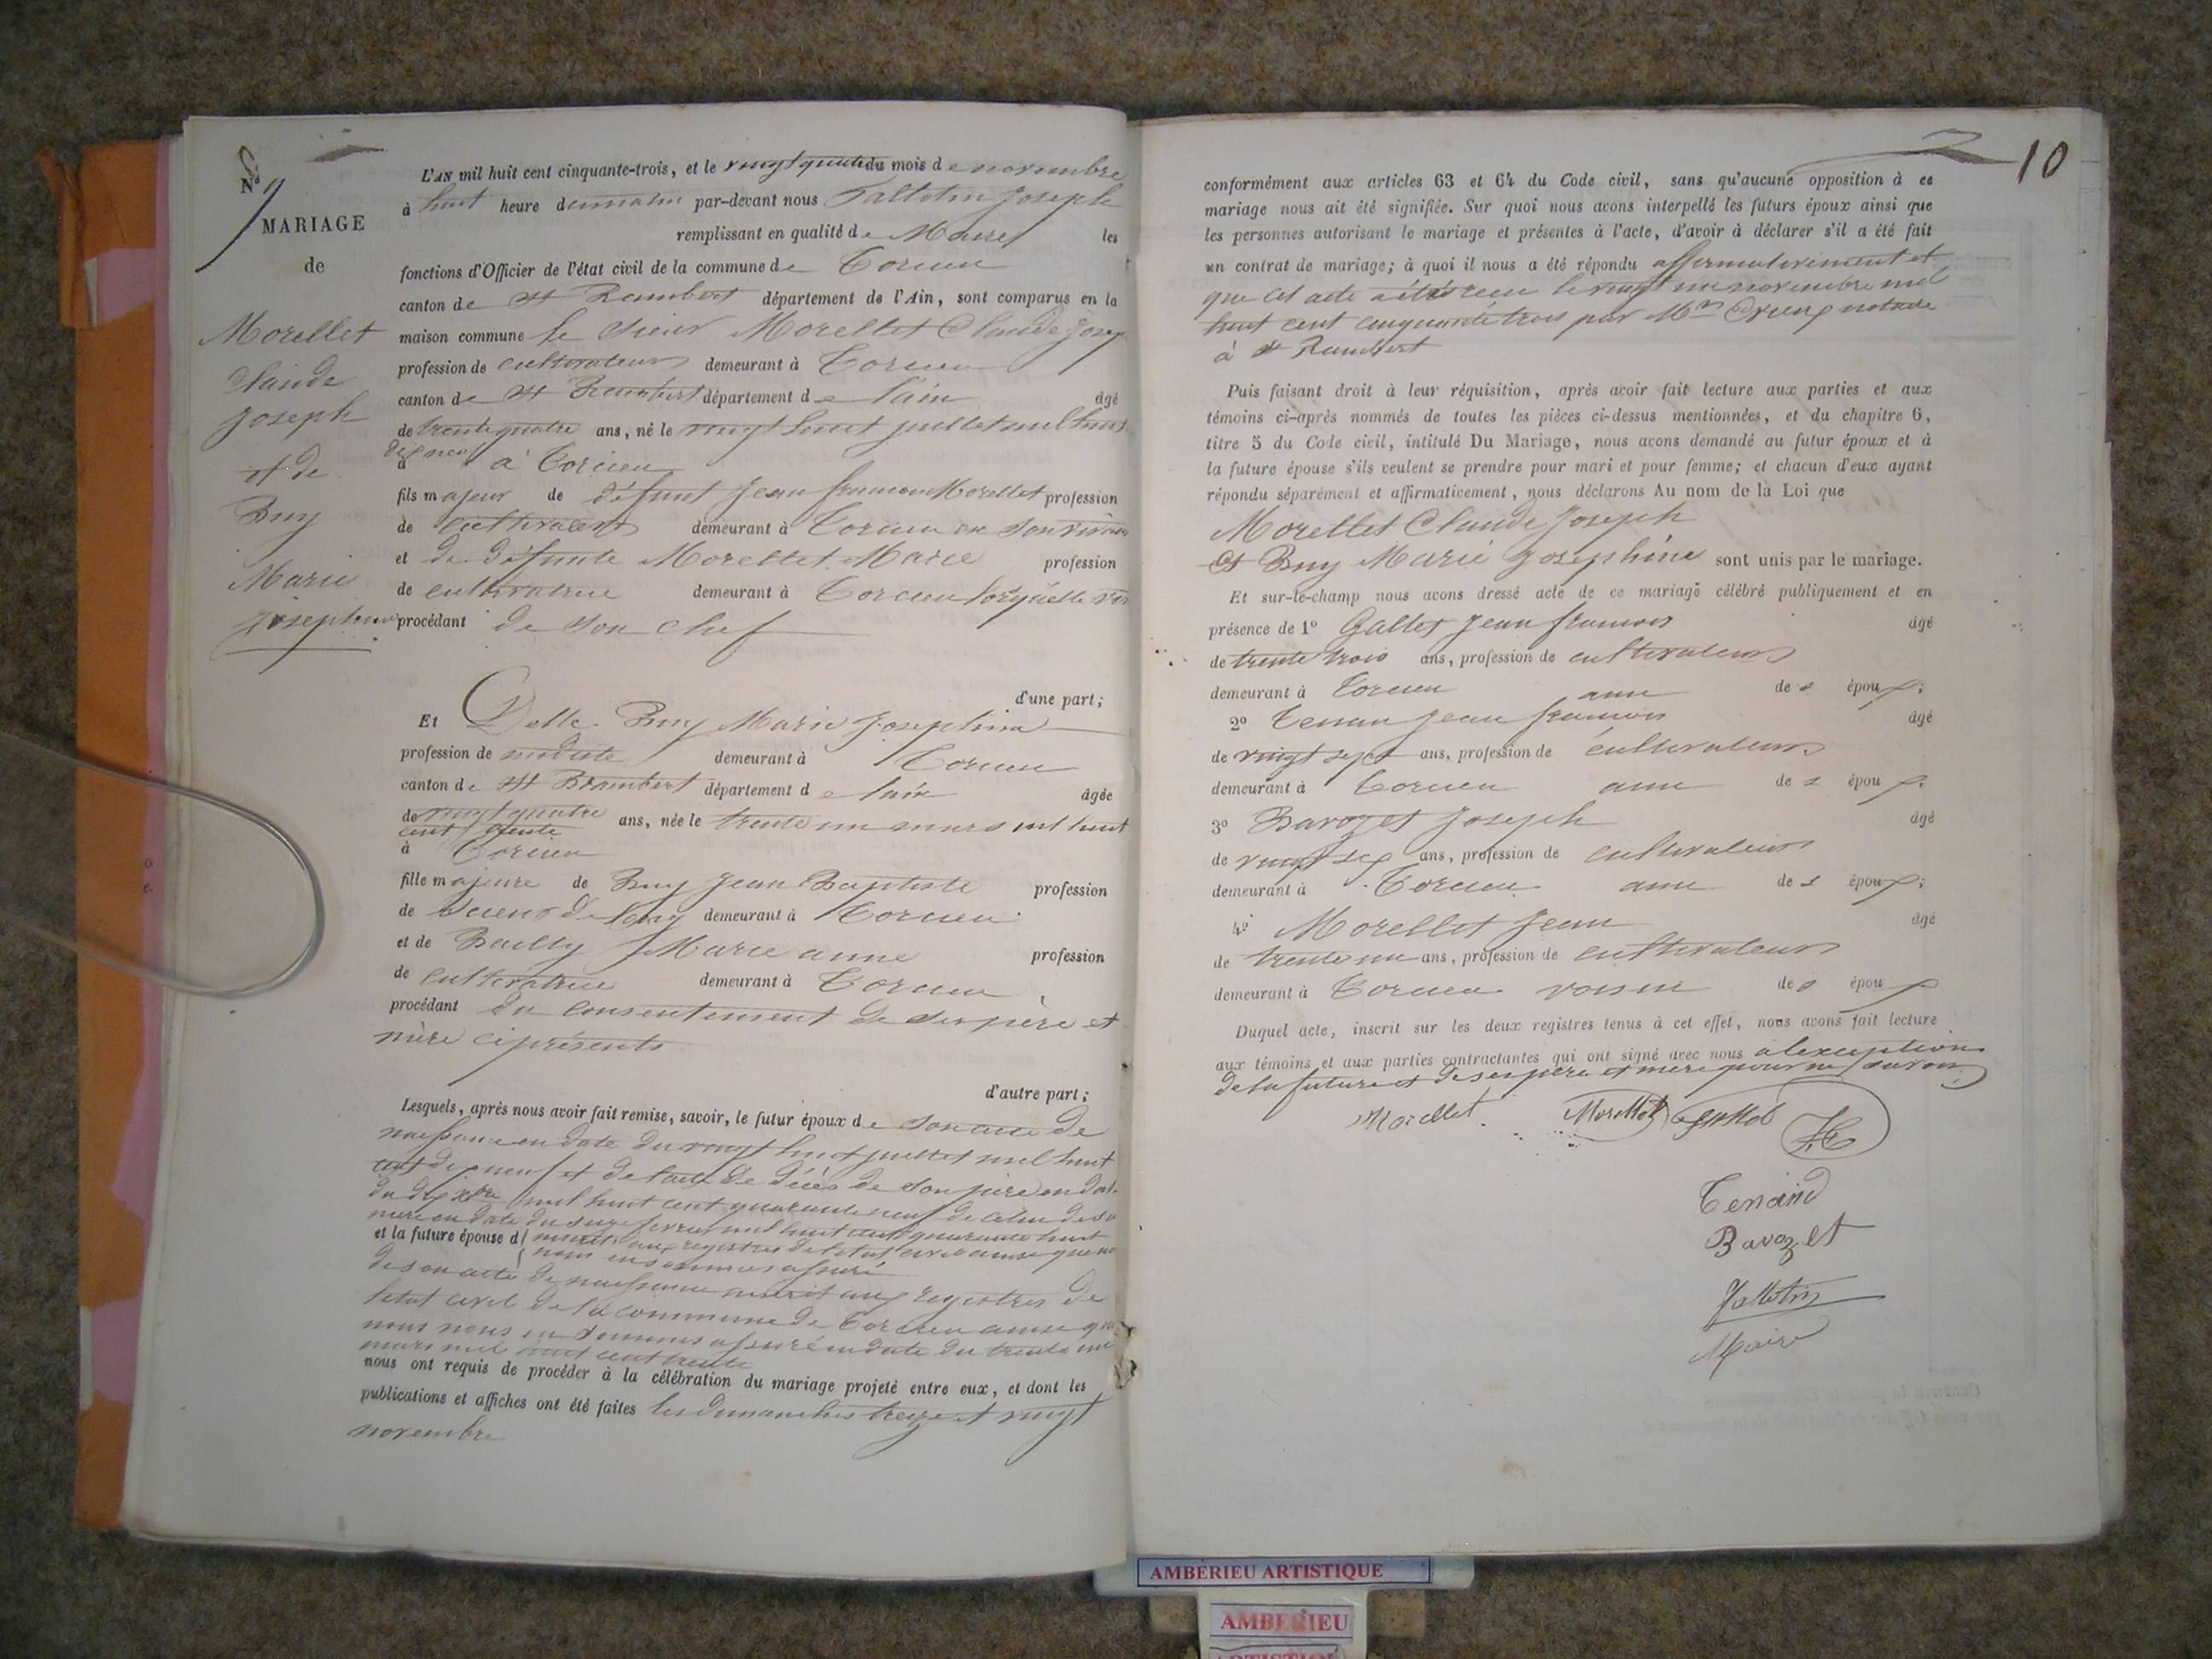 N° 9
MARIAGE
de
Morellet
Claude
Joseph
et de
Buy
Marie
Josephine
L'AN mil huit cent cinquante-trois, et le vingt quatre du mois de novembre
à huit heure du matin par-devant nous Tallotin Joseph
remplissant en qualité de Maire les
fonctions d'Officier de l'état civil de la commune de Torcieu
canton de St Rambert département de l'Ain, sont comparus en la
maison commune le sieur Morellet Claude Josep
profession de cultivateur demeurant à Torcieu
canton de St Rambert département de lain âgé
de trente quatre ans, né le vingt huit juillet mil huit
dix neuf
à à Torcieu
fils majeur de défunt Jean francois Morellet profession
de cultivateur demeurant à Torcieu en son vivant
et de défunte Morellet Marie profession
de cultivatrice demeurant à Torcieu lorsquelle viv
procédant de son chef
d'une part;
Et Delle Buy Marie Josephine
profession de modiste demeurant à Torcieu
canton de St Rambert département de lain âgée
de vingt quatre ans, née le trente un mars mil huit
cent trente
à Torcieu
fille majeure de Buy Jean Baptiste profession
de scieur de long demeurant à Torcieu
et de Bailly Marie anne profession
de cultivatrice demeurant à Torcieu
procédant du consentement de ses père et
mère ci présents
d'autre part;
Lesquels, après nous avoir fait remise, savoir, le futur époux de son acte de
naissance en date du vingt huit juillet mil huit
cent dix neuf et de lacte de décès de son père en dat
du dix xbre mil huit cent quarante neuf de celui de sa
mère en date du fevrier mil huit cent quarante huit
et la future épouse d inscrits aux registres de letat civil ainsi que no
nous en sommes assuré
de son acte de naissance inscrit aux registres de
letat civil de la commune de Torcieu ainsi que
nous nous en sommes assuré en date du trente un
mars mil huit cent trente
nous ont requis de procéder à la célébration du mariage projeté entre eux, et dont les
publications et affiches ont été faites les dimanches treize et vingt
novembre
10
conformément aux articles 63 et 64 du Code civil, sans qu'aucune opposition à ce
mariage nous ait été signifiée. Sur quoi nous avons interpellé les futurs époux ainsi que
les personnes autorisant le mariage et présentes à l'acte, d'avoir à déclarer s'il a été fait
un contrat de mariage; à quoi il nous a été répondu affirmativement et
que cet acte a été recu le vingt un novembre mil
huit cent cinquante trois par Me notaire
à St Rambert
Puis faisant droit à leur réquisition, après avoir fait lecture aux parties et aux
témoins ci-après nommés de toutes les pièces ci-dessus mentionnées, et du chapitre 6,
titre 5 du Code civil, intitulé Du Mariage, nous avons demandé au futur époux et à
la future épouse s'ils veulent se prendre pour mari et pour femme; et chacun d'eux ayant
répondu séparément et affirmativement, nous déclarons Au nom de la Loi que
Morellet Claude Joseph
et Buy Marie Josephine sont unis par le mariage.
Et sur-le-champ nous avons dressé acte de ce mariage célébré publiquement et en
présence de 1° Gallet Jean francois âgé
de trente trois ans, profession de cultivateur
demeurant à Torcieu ami des époux;
2° Tenan Jean francois âgé
de vingt sept ans, profession de cultivateur
demeurant à Torcieu ami des époux;
3° Bavozet Joseph âgé
de vingt sep ans, profession de cultivateur
demeurant à Torcieu ami des époux;
4° Morellet Jean âgé
de trente un ans, profession de cultivateur
demeurant à Torcieu voisin des époux
Duquel acte, inscrit sur les deux registres tenus à cet effet, nous avons fait lecture
aux témoins et aux parties contractantes qui ont signé avec nous à lexception
de la future et de ses père et mère pour ne savoir
Morellet Morellet Gallet
Tenand
Bavozet
Tallotin
Maire
AMBERIEU ARTISTIQUE
AMBERIEU
ARTISTIQUE